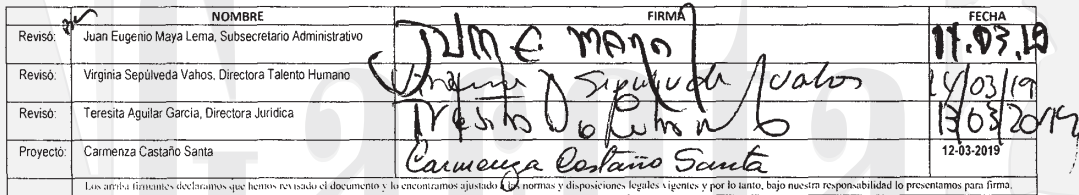 NOMBRE FIRMA FECHA
Revisó: Juan Eugenio Maya Lema, Subsecretario Administrativo Juan E Maya 14.03.19
Revisó: Virginia Sepúlveda Vahos, Directora Talento Humano Virginia Sepúlveda Vahos 14/03/19
Revisó: Teresita Aguilar Garcia, Directora Jurídica Teresita Aguilar 13/03/2019
Proyectó: Carmenza Castaño Santa Carmenza Castaño Santa 12-03-2019
Los arriba firmantes declaramos que hemos revisado el documento y lo encontramos ajustado a las normas y disposiciones legales vigentes y por lo tanto, bajo nuestra responsabilidad lo presentamos para firma.